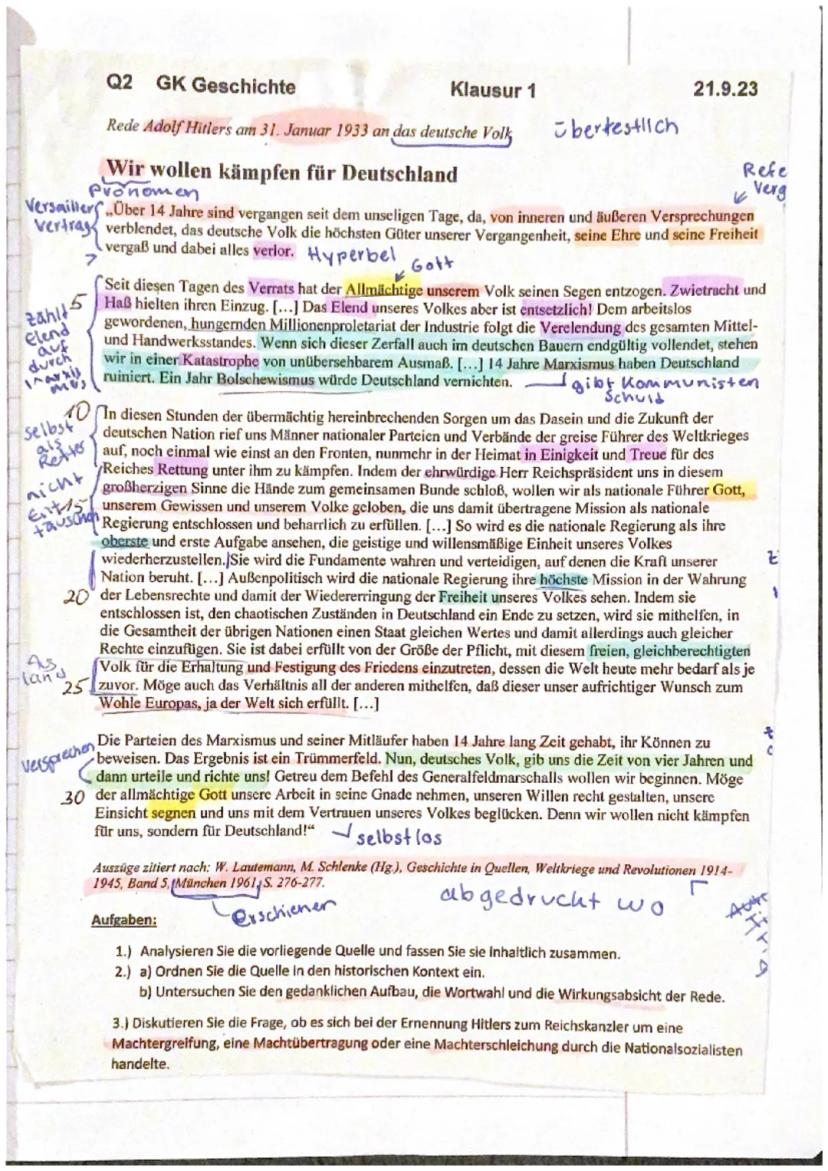 Q2 GK Geschichte Klausur 1 21.9.23
Rede Adolf Hitlers am 31. Januar 1933 an das deutsche Volk übertestlich
Wir wollen kämpfen für Deutschland
Pronomen
Refe
Verg
Versailler
Vertrag
„Über 14 Jahre sind vergangen seit dem unseligen Tage, da, von inneren und äußeren Versprechungen
verblendet, das deutsche Volk die höchsten Güter unserer Vergangenheit, seine Ehre und seine Freiheit
vergaß und dabei alles verlor. Hyperbel
Gott
5
zählt
Elend
auf
durch
Seit diesen Tagen des Verrats hat der Allmächtige unserem Volk seinen Segen entzogen. Zwietracht und
Haß hielten ihren Einzug. [...] Das Elend unseres Volkes aber ist entsetzlich! Dem arbeitslos
gewordenen, hungernden Millionenproletariat der Industrie folgt die Verelendung des gesamten Mittel-
und Handwerksstandes. Wenn sich dieser Zerfall auch im deutschen Bauern endgültig vollendet, stehen
wir in einer Katastrophe von unübersehbarem Ausmaß. [...] 14 Jahre Marxismus haben Deutschland
ruiniert. Ein Jahr Bolschewismus würde Deutschland vernichten. gibt Kommunisten
Schuld
10
selbst
als
Retter
nicht
In diesen Stunden der übermächtig hereinbrechenden Sorgen um das Dasein und die Zukunft der
deutschen Nation rief uns Männer nationaler Parteien und Verbände der greise Führer des Weltkrieges
auf, noch einmal wie einst an den Fronten, nunmehr in der Heimat in Einigkeit und Treue für des
Reiches Rettung unter ihm zu kämpfen. Indem der ehrwürdige Herr Reichspräsident uns in diesem
großherzigen Sinne die Hände zum gemeinsamen Bunde schloß, wollen wir als nationale Führer Gott,
15 unserem Gewissen und unserem Volke geloben, die uns damit übertragene Mission als nationale
Regierung entschlossen und beharrlich zu erfüllen. [...] So wird es die nationale Regierung als ihre
oberste und erste Aufgabe ansehen, die geistige und willensmäßige Einheit unseres Volkes
wiederherzustellen. Sie wird die Fundamente wahren und verteidigen, auf denen die Kraft unserer
Nation beruht. [...] Außenpolitisch wird die nationale Regierung ihre höchste Mission in der Wahrung
20 der Lebensrechte und damit der Wiedererringung der Freiheit unseres Volkes sehen. Indem sie
entschlossen ist, den chaotischen Zuständen in Deutschland ein Ende zu setzen, wird sie mithelfen, in
die Gesamtheit der übrigen Nationen einen Staat gleichen Wertes und damit allerdings auch gleicher
Rechte einzufügen. Sie ist dabei erfüllt von der Größe der Pflicht, mit diesem freien, gleichberechtigten
Volk für die Erhaltung und Festigung des Friedens einzutreten, dessen die Welt heute mehr bedarf als je
25 zuvor. Möge auch das Verhältnis all der anderen mithelfen, daß dieser unser aufrichtiger Wunsch zum
Wohle Europas, ja der Welt sich erfüllt. [...]
Versprechen
Die Parteien des Marxismus und seiner Mitläufer haben 14 Jahre lang Zeit gehabt, ihr Können zu
beweisen. Das Ergebnis ist ein Trümmerfeld. Nun, deutsches Volk, gib uns die Zeit von vier Jahren und
dann urteile und richte uns! Getreu dem Befehl des Generalfeldmarschalls wollen wir beginnen. Möge
30 der allmächtige Gott unsere Arbeit in seine Gnade nehmen, unseren Willen recht gestalten, unsere
Einsicht segnen und uns mit dem Vertrauen unseres Volkes beglücken. Denn wir wollen nicht kämpfen
für uns, sondern für Deutschland!“ selbstlos
Auszüge zitiert nach: W. Lautemann, M. Schlenke (Hg.), Geschichte in Quellen, Weltkriege und Revolutionen 1914-
1945, Band 5, München 1961, S. 276-277.
Erschienen abgedruckt wo
Aufgaben:
1.) Analysieren Sie die vorliegende Quelle und fassen Sie sie inhaltlich zusammen.
2.) a) Ordnen Sie die Quelle in den historischen Kontext ein.
b) Untersuchen Sie den gedanklichen Aufbau, die Wortwahl und die Wirkungsabsicht der Rede.
3.) Diskutieren Sie die Frage, ob es sich bei der Ernennung Hitlers zum Reichskanzler um eine
Machtergreifung, eine Machtübertragung oder eine Machterschleichung durch die Nationalsozialisten
handelte.